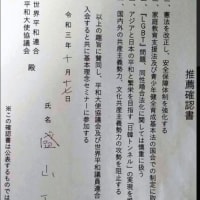 推薦確認書
憲法を改正し、安全保障体制を強化する
家庭教育支援法及び青少年健全育成基本法の国会での制定に取
『LGBT』問題、同性婚合法化に関しては慎重に扱う
アジアと日本の平和と繁栄を目指す「日韓トンネル」の実現を
国内外の共産主義勢力、文化共産主義勢力の攻勢を阻止する
以上の趣旨に賛同し、平和大使協議会及び世界平和議員連合
入会すると共に基本理念セミナーに参加する
令和三年十月
氏名 盛山
世界平和連合
平和大使協議会 殿
※この確認書は公表するものでは